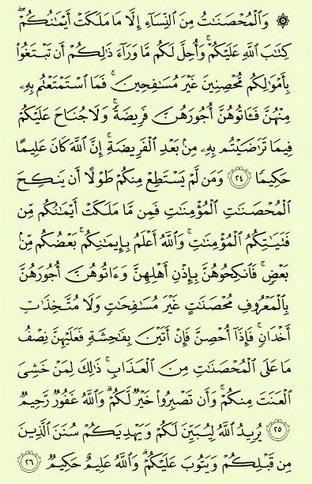 ۞ وَالْمُحْصَنَاتُ مِنَ النِّسَاءِ إِلَّا مَا مَلَكَتْ أَيْمَانُكُمْ ۖ
كِتَابَ اللَّهِ عَلَيْكُمْ ۚ وَأُحِلَّ لَكُم مَّا وَرَاءَ ذَٰلِكُمْ أَن تَبْتَغُوا
بِأَمْوَالِكُم مُّحْصِنِينَ غَيْرَ مُسَافِحِينَ ۚ فَمَا اسْتَمْتَعْتُم بِهِ
مِنْهُنَّ فَآتُوهُنَّ أُجُورَهُنَّ فَرِيضَةً ۚ وَلَا جُنَاحَ عَلَيْكُمْ
فِيمَا تَرَاضَيْتُم بِهِ مِن بَعْدِ الْفَرِيضَةِ ۚ إِنَّ اللَّهَ كَانَ عَلِيمًا
حَكِيمًا ٢٤ وَمَن لَّمْ يَسْتَطِعْ مِنكُمْ طَوْلًا أَن يَنكِحَ
الْمُحْصَنَاتِ الْمُؤْمِنَاتِ فَمِن مَّا مَلَكَتْ أَيْمَانُكُم مِّن
فَتَيَاتِكُمُ الْمُؤْمِنَاتِ ۚ وَاللَّهُ أَعْلَمُ بِإِيمَانِكُم ۚ بَعْضُكُم مِّن
بَعْضٍ ۚ فَانكِحُوهُنَّ بِإِذْنِ أَهْلِهِنَّ وَآتُوهُنَّ أُجُورَهُنَّ
بِالْمَعْرُوفِ مُحْصَنَاتٍ غَيْرَ مُسَافِحَاتٍ وَلَا مُتَّخِذَاتِ
أَخْدَانٍ ۚ فَإِذَا أُحْصِنَّ فَإِنْ أَتَيْنَ بِفَاحِشَةٍ فَعَلَيْهِنَّ نِصْفُ
مَا عَلَى الْمُحْصَنَاتِ مِنَ الْعَذَابِ ۚ ذَٰلِكَ لِمَنْ خَشِيَ
الْعَنَتَ مِنكُمْ ۚ وَأَن تَصْبِرُوا خَيْرٌ لَّكُمْ ۗ وَاللَّهُ غَفُورٌ رَّحِيمٌ
٢٥ يُرِيدُ اللَّهُ لِيُبَيِّنَ لَكُمْ وَيَهْدِيَكُمْ سُنَنَ الَّذِينَ
مِن قَبْلِكُمْ وَيَتُوبَ عَلَيْكُمْ ۗ وَاللَّهُ عَلِيمٌ حَكِيمٌ ٢٦